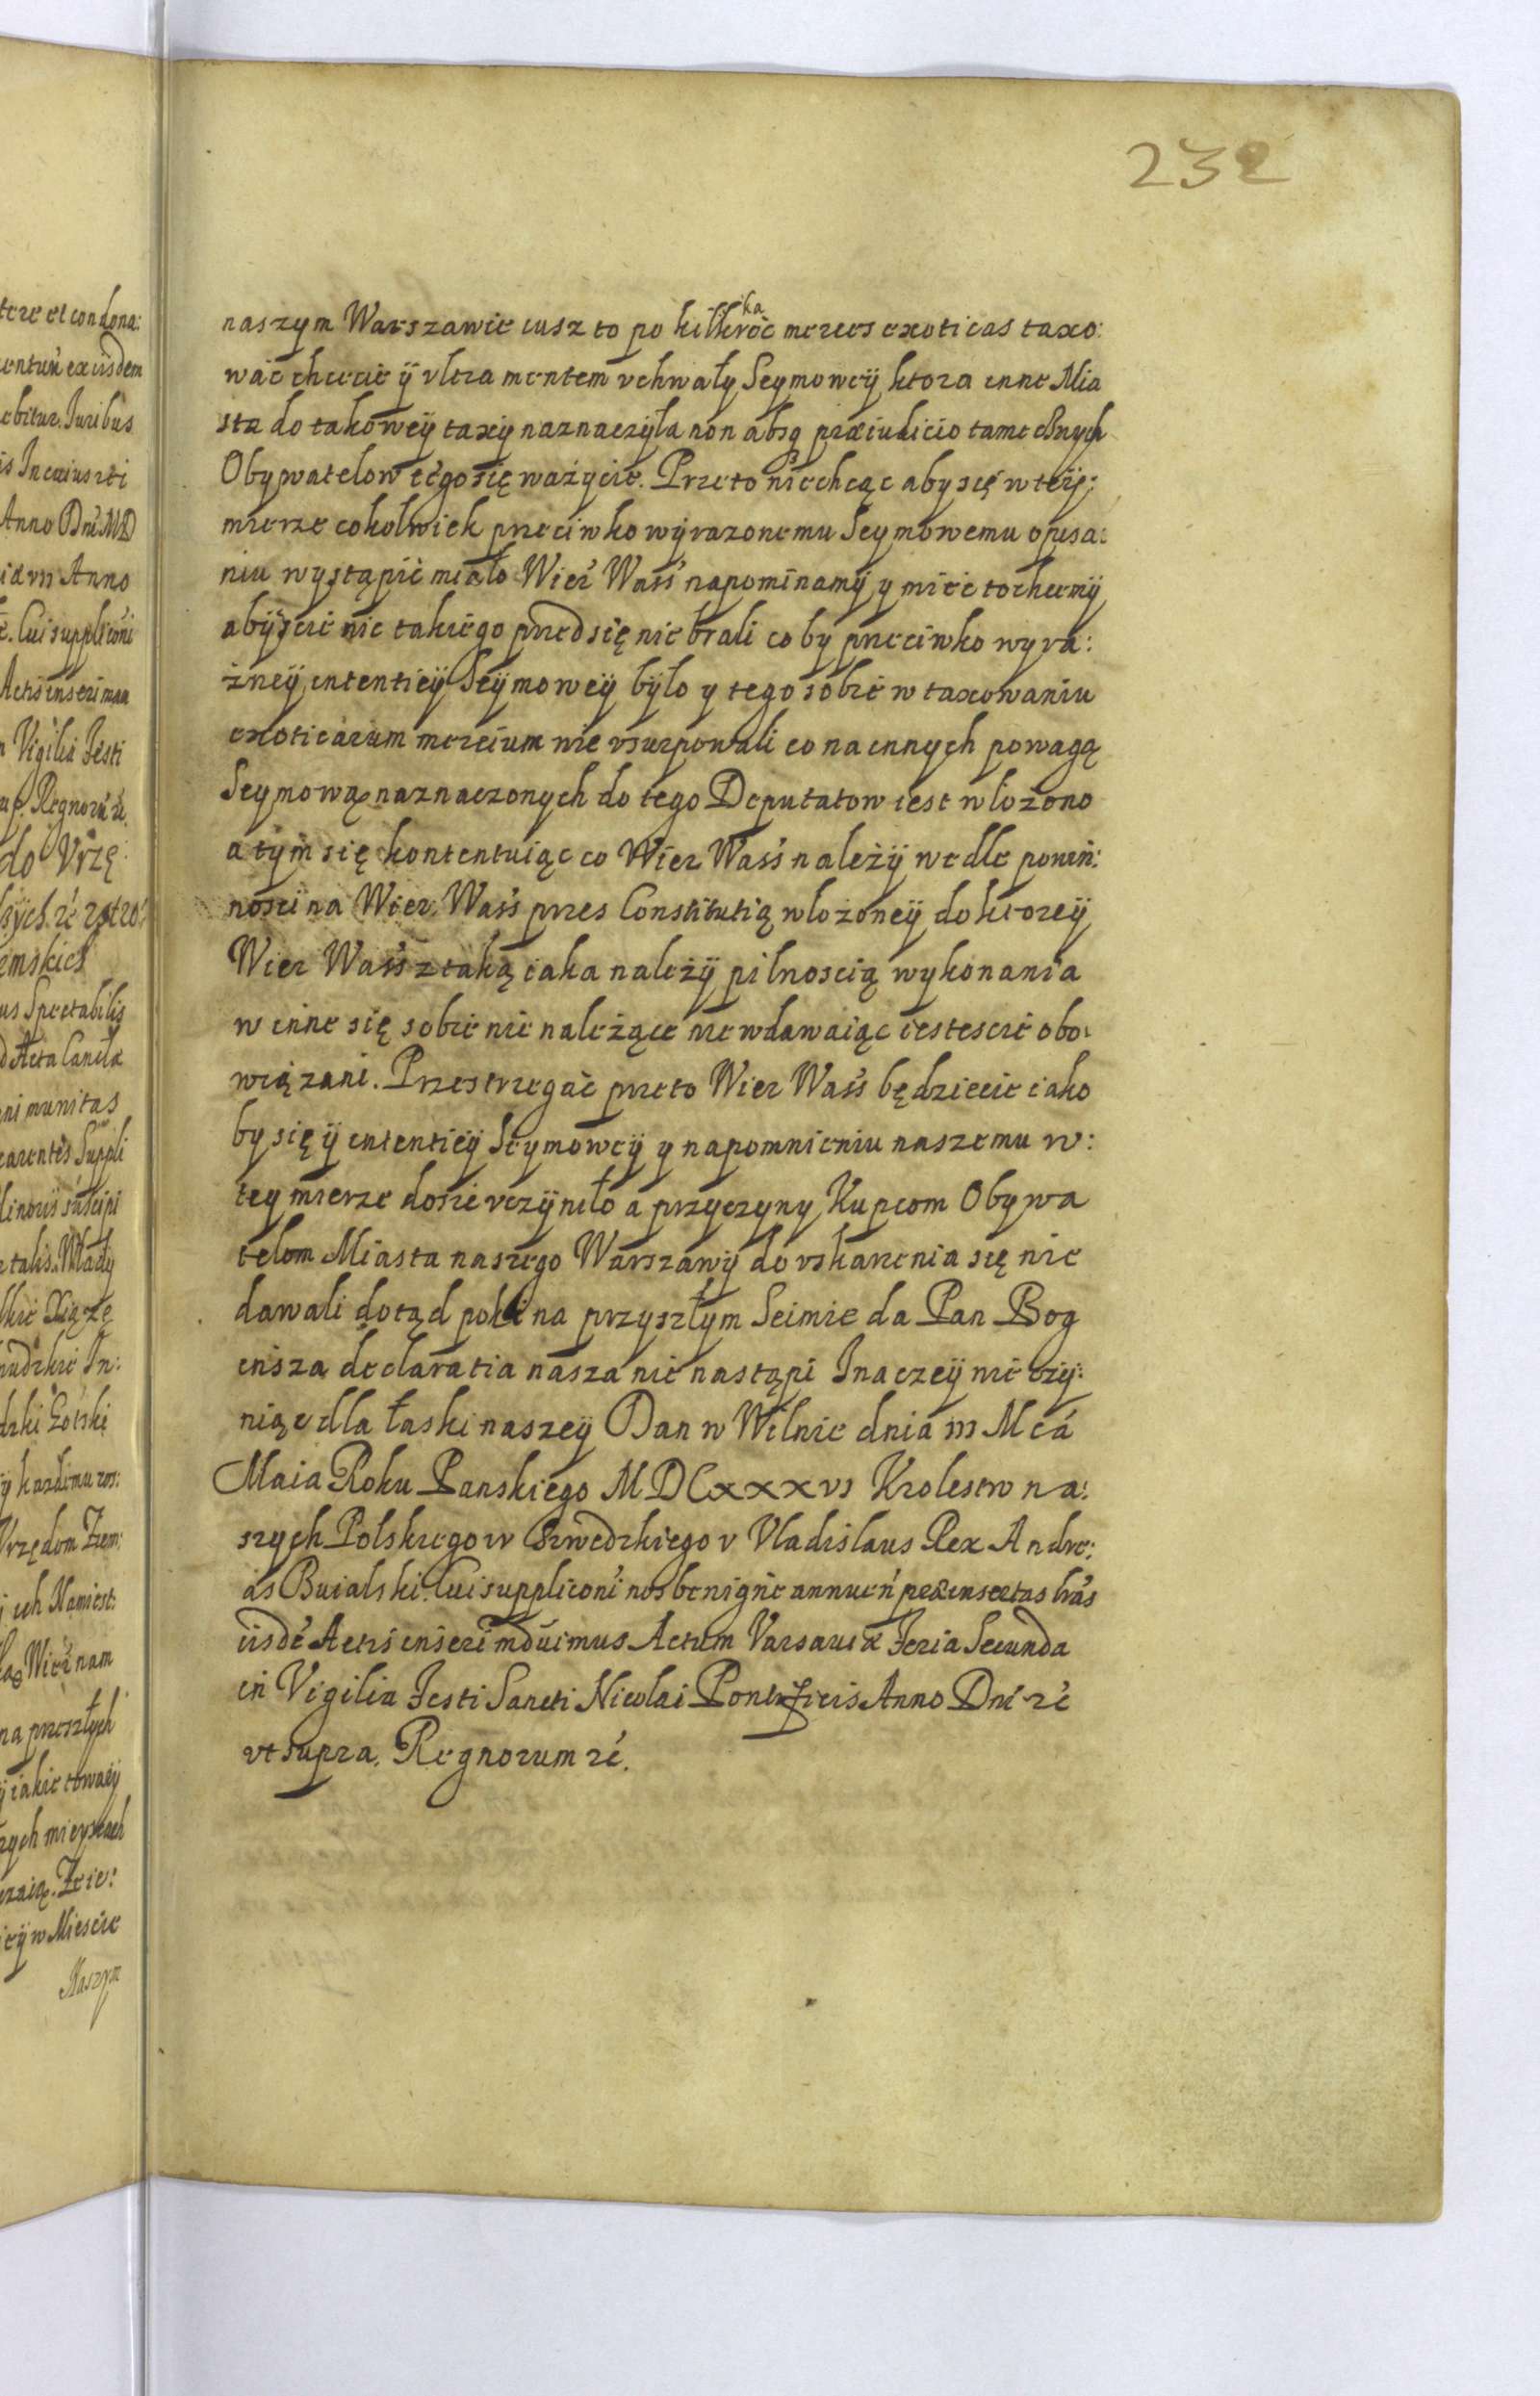 232
naszym Warszawie iusz to po kilkakroć merces exoticas taxo:
wać chcecie ÿ vltra mentem vchwały Seymoweÿ ktora inne Mia
sta do takoweÿ taxÿ naznaczÿła non absq præiudicio tamecznych
Obywatelow tego się ważycie. Przeto niechcąc aby się w teÿ:
mierze cokolwiek przeciwko wÿrazonemu Seymowemu opisa:
niu wystąpić miało Wier Wass napominamÿ y mieć to chcemÿ
abÿscie nic takiego przed się nie brali co by przeciwko wyra:
żneÿ intentieÿ Seÿmoweÿ bÿło y tego sobie w taxowaniu
exoticarum mercium nie vsurpowali co na innych powagą
Seymową naznaczonych do tego Deputatow iest włożono
a tÿm się kontentuiąc co Wier Wass należÿ wedle powin:
nosci na Wier Wass przes Constitutią włożoneÿ do ktoreÿ
Wier Wass z taką iaka należÿ pilnoscią wykonania
w inne się sobie nie należące nie wdawaiąc iestescie obo:
wiązani. Przestrzegać przeto Wier Wass będziecie iako
by się ÿ intentieÿ Seymoweÿ y napomnieniu naszemu w:
tey mierze dosić vczÿniło a przyczyny Kupcom Obywa
telom Miasta naszego Warszawÿ do vskarżenia się nie
dawali dotąd poki na przyszłym Seimie da Pan Bog
insza declaratia nasza nie nastąpi Inaczeÿ nie czÿ:
niąc dla łaski naszeÿ Dan w Wilnie dnia III Mca
Maia Roku Panskiego MDCXXXVI Krolestw na:
szych Polskiego IV Szwedzkiego V Vladislaus Rex Andre:
as Buialski. Cui suppliconi nos benigne annuen peinsertas lras
iisde Actis inseri mduimus Actum Varsauiæ Feria Secunda
in Vigilia Festi Sancti Nicolai Pontificis Anno Dni ꝛc
vt supra. Regnorum ꝛc.